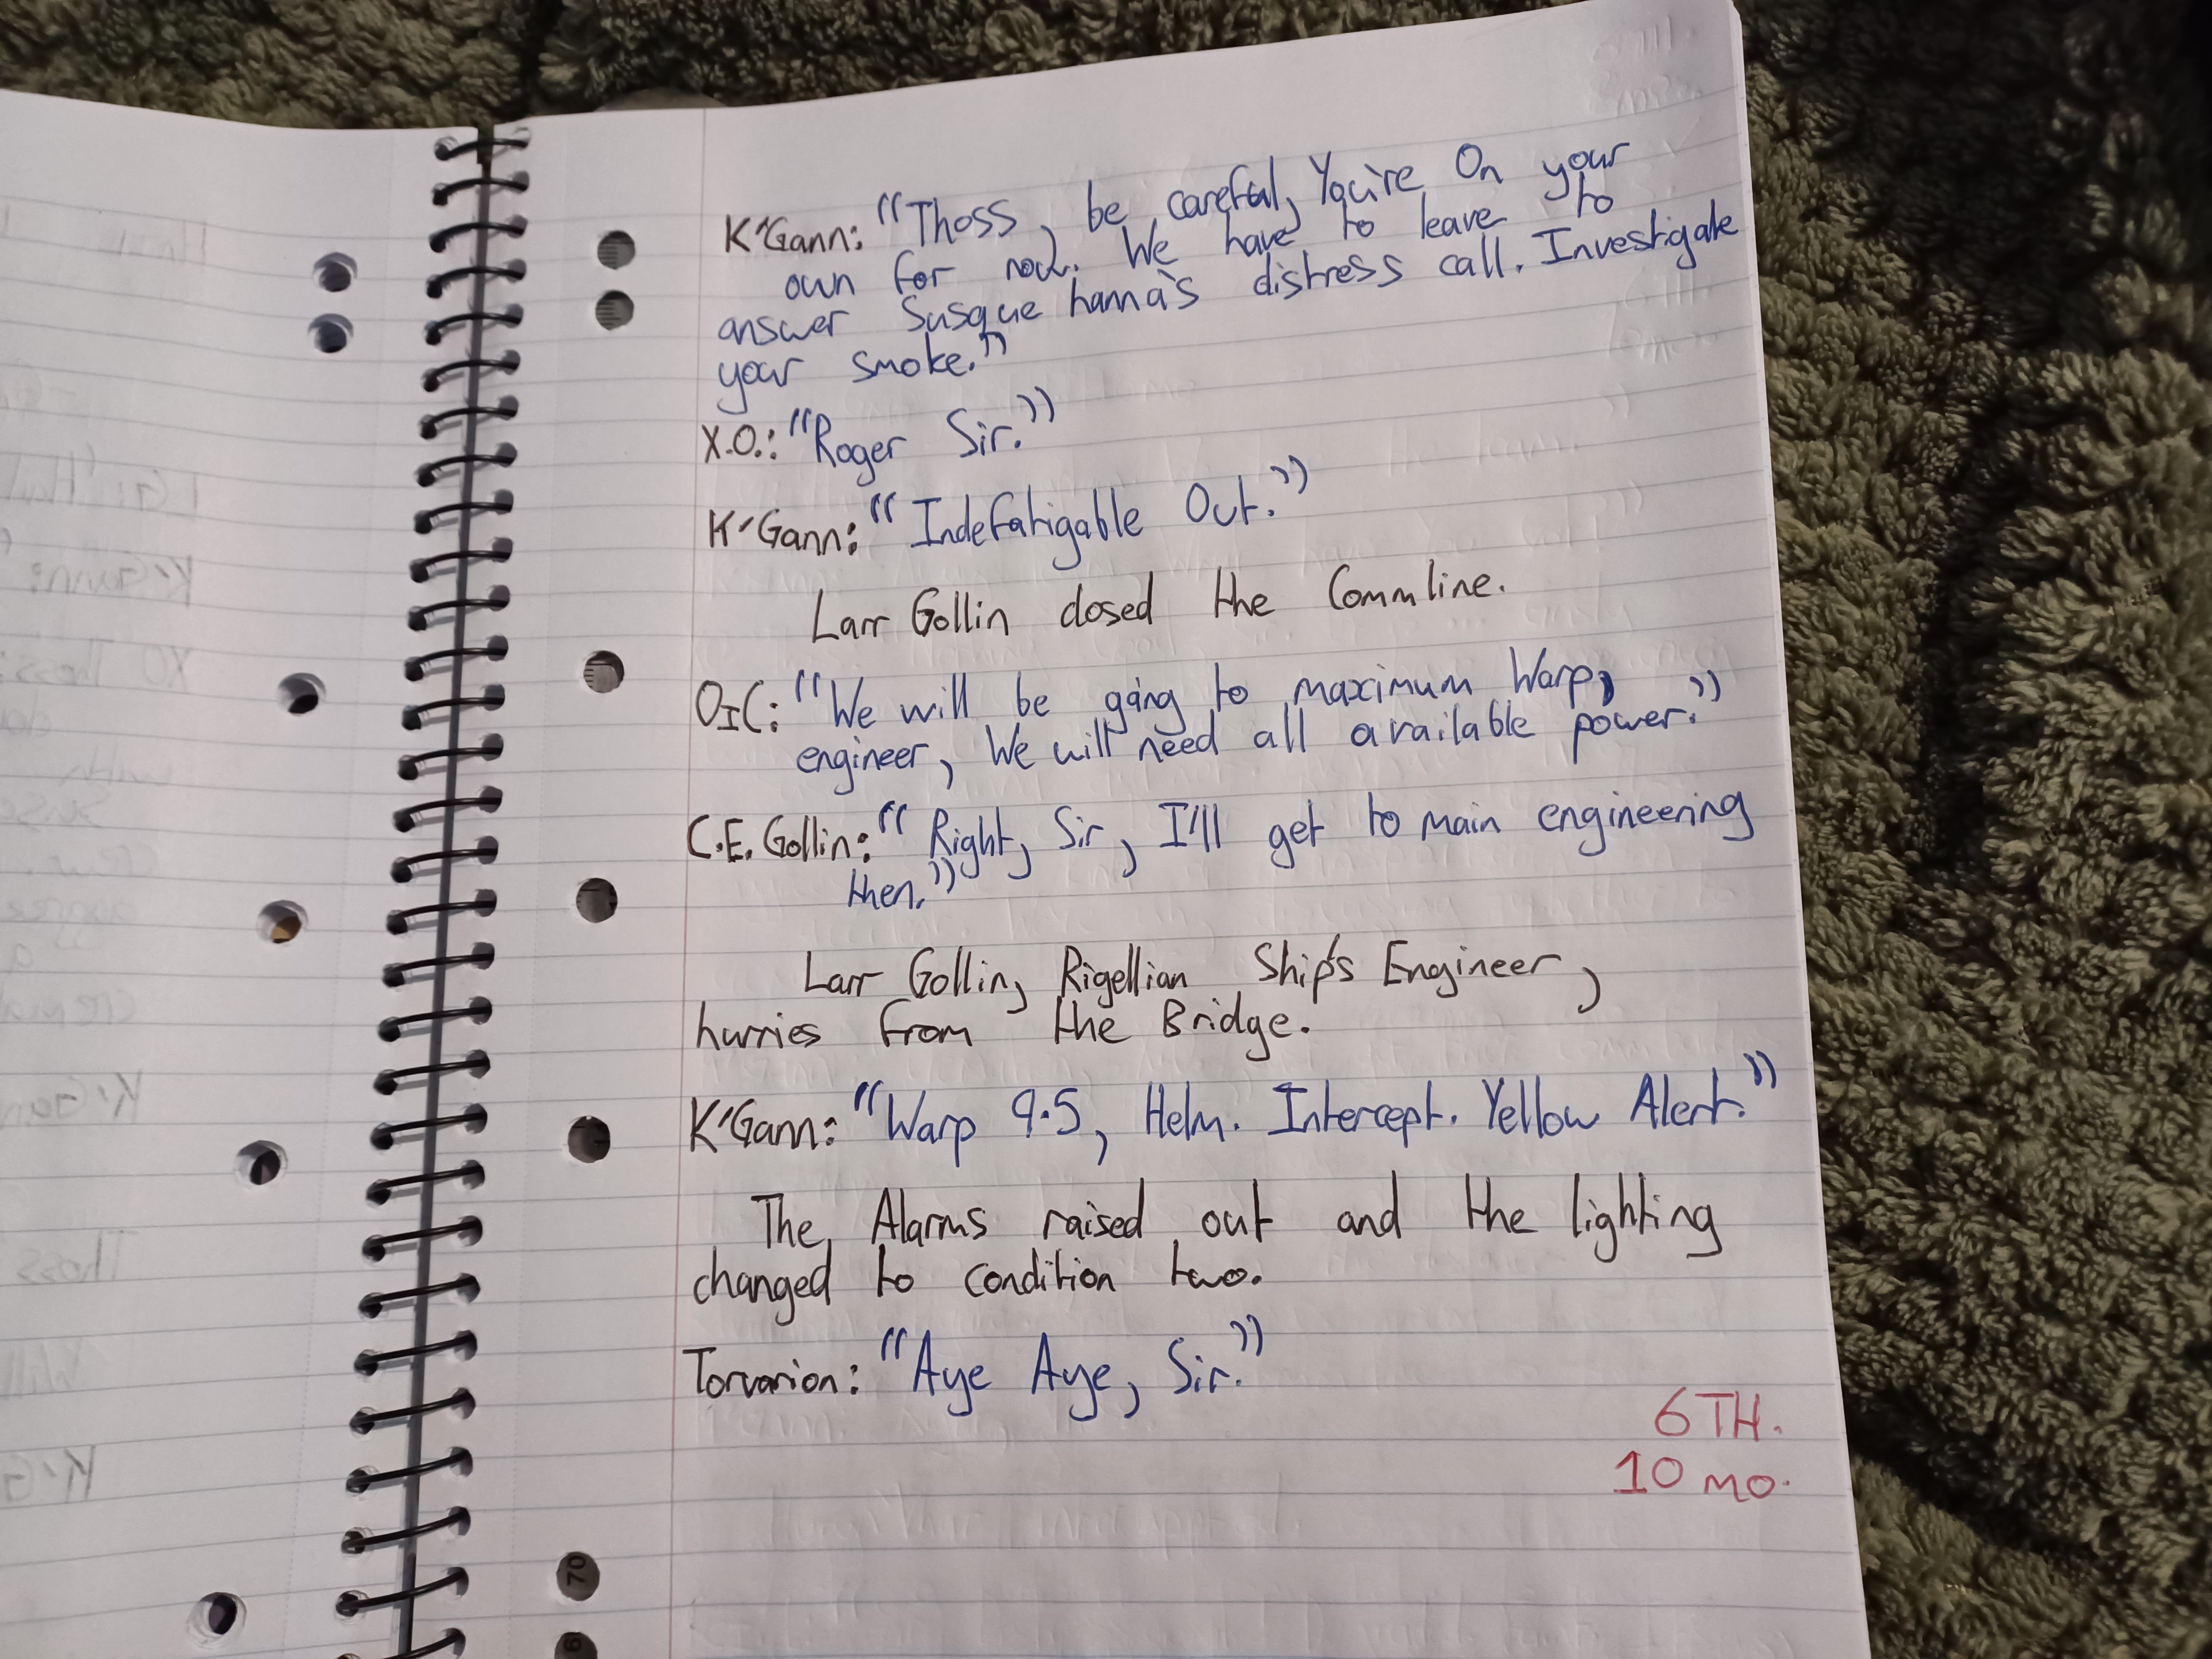 K'Gann: "Thoss, be careful, You're On your
own for now. We have to leave to
answer Susquehanna's distress call. Investigate
your smoke."
X.O.: "Roger Sir."
K'Gann: "Indefatigable Out."
Larr Gollin closed the Commline.
OIC: "We will be going to maximum Warp,
engineer, We will need all available power."
C.E. Gollin: "Right, Sir, I'll get to main engineering
then."
Larr Gollin, Rigellian Ship's Engineer,
hurries from the Bridge.
K'Gann: "Warp 9.5, Helm. Intercept. Yellow Alert."
The Alarms raised out and the lighting
changed to condition two.
Torvarion: "Aye Aye, Sir."
6TH.
10 MO.
70